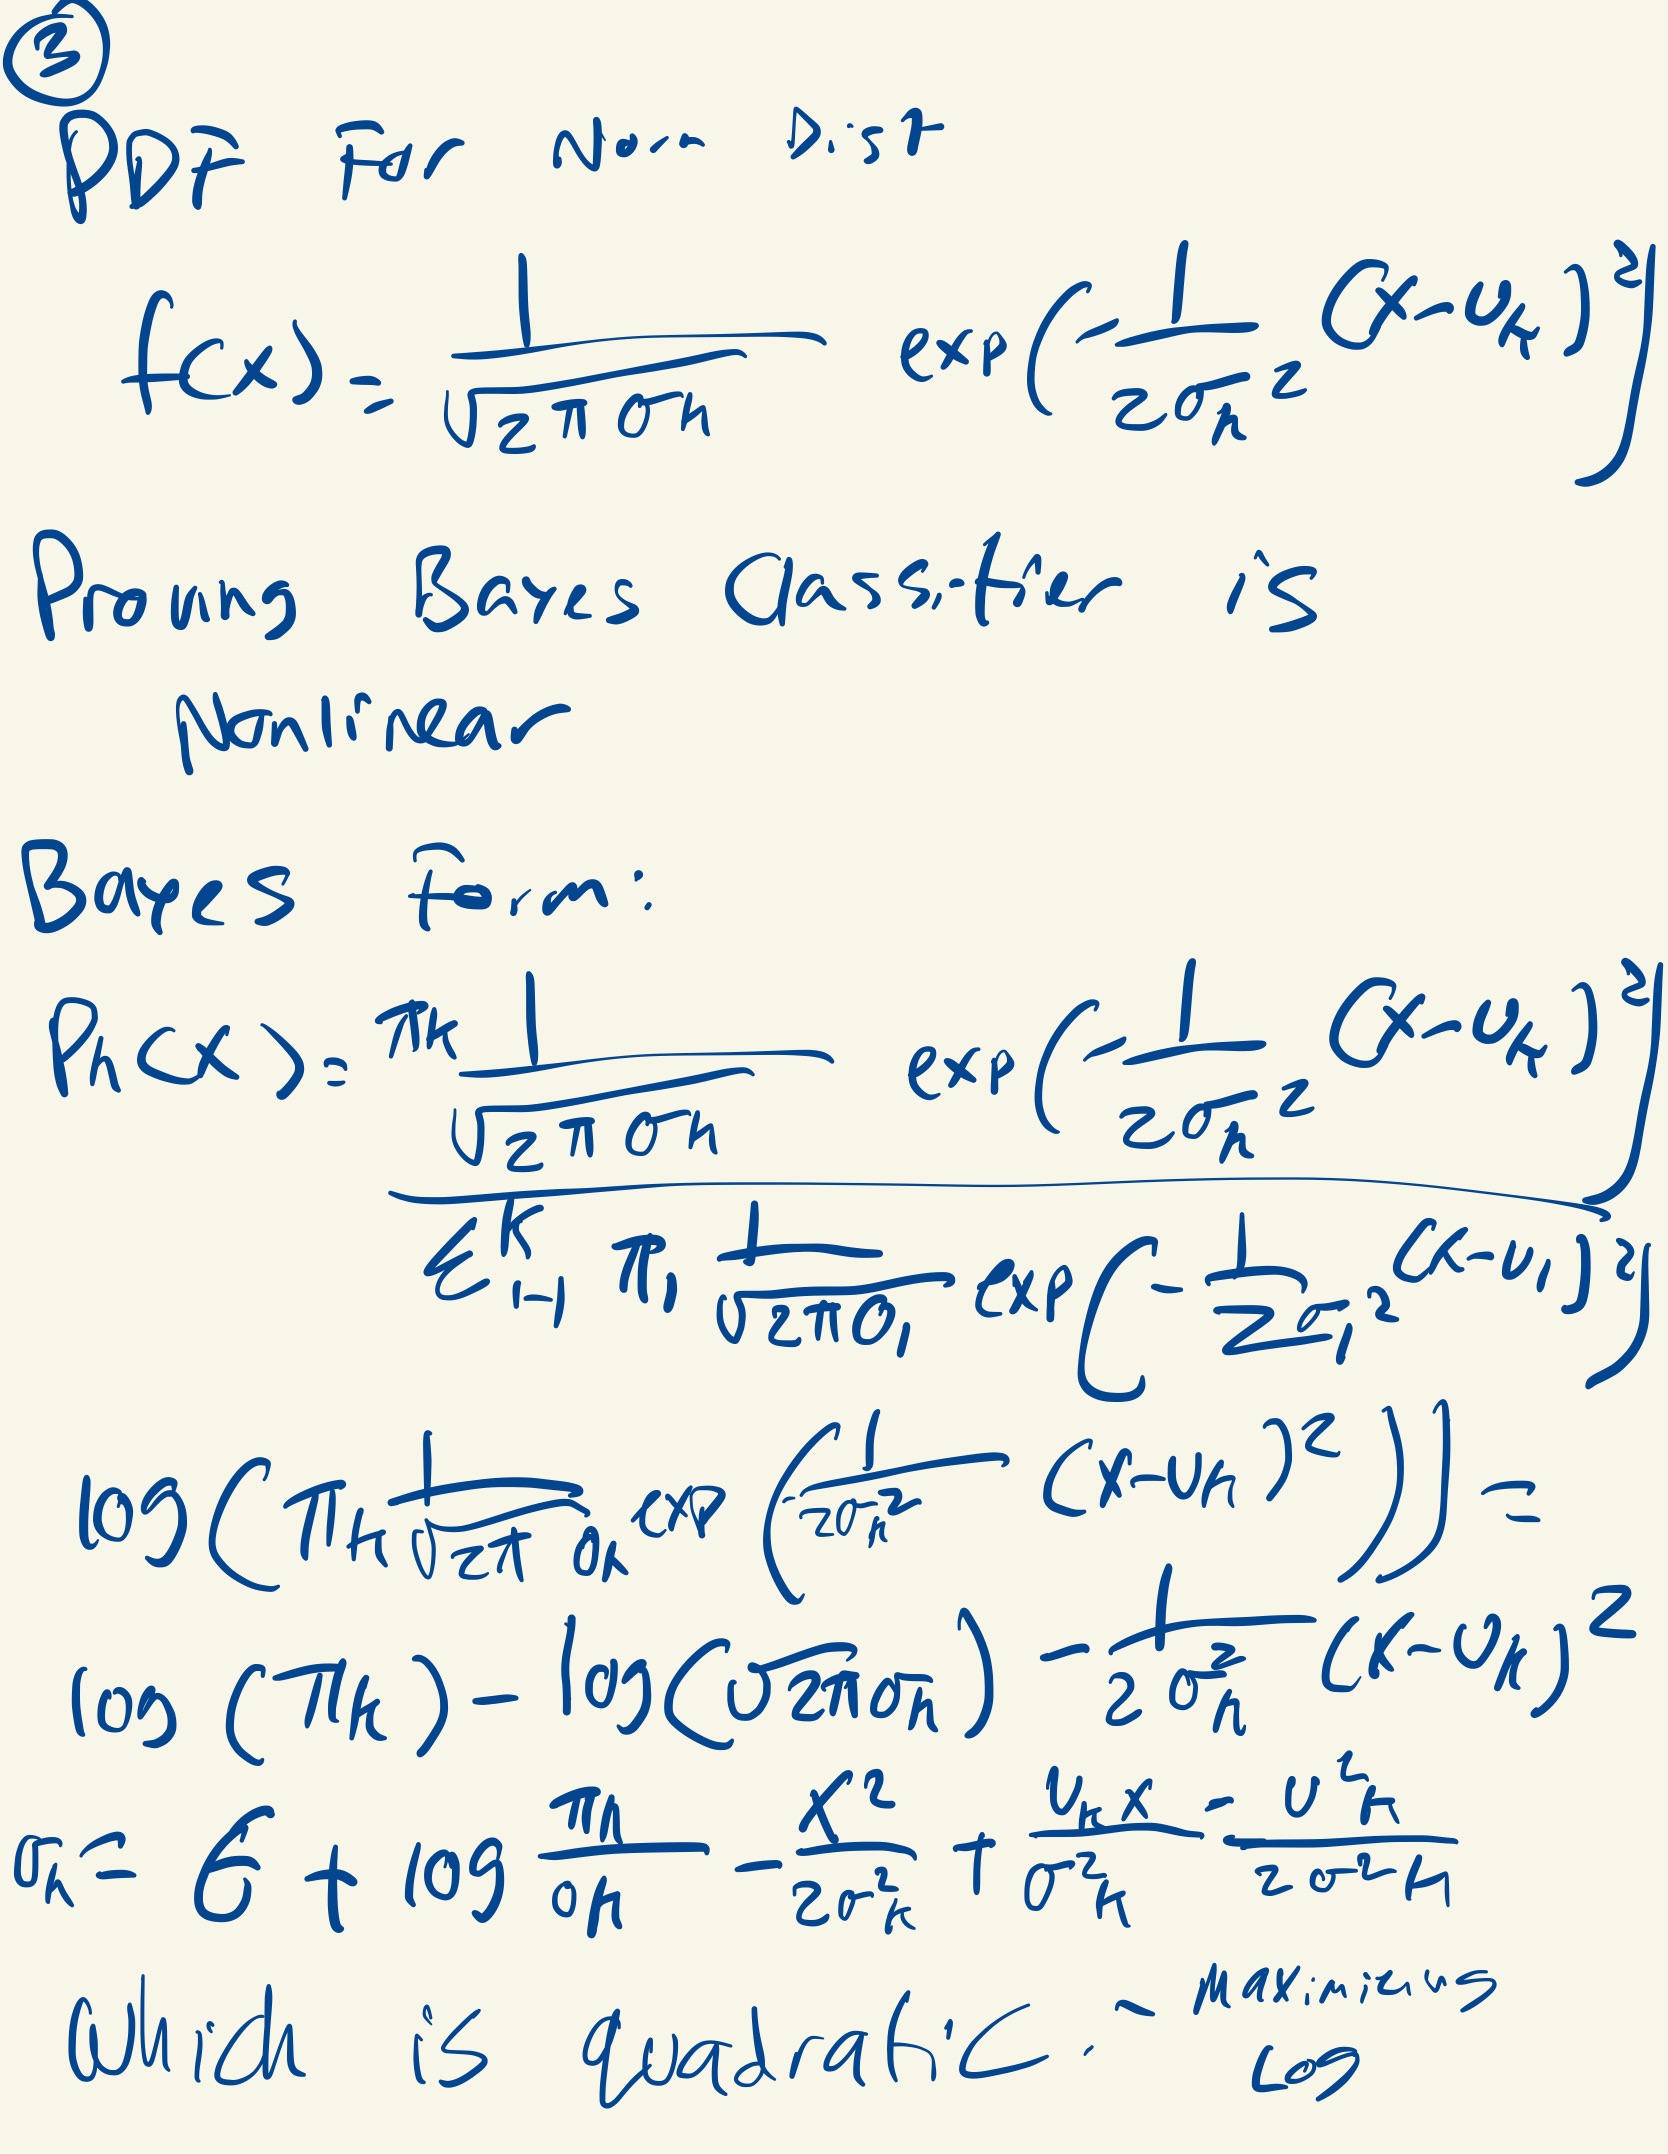 ③
PDF For Norm Dist
f(x) = 1/√(2πσk) exp(-1/(2σk²) (x-uk)²)
Proving Bayes Classifier is
Nonlinear
Bayes Form:
Pk(x) = πk 1/√(2πσk) exp(-1/(2σk²) (x-uk)²) / Σ^K_{1-1} π1 1/√(2πσ1) exp(-1/(2σ1²) (x-u1)²)
log(πk 1/(√2π σk) exp(-1/(2σk²) (x-uk)²)) =
log(πk) - log(√2πσk) - 1/(2σk²) (x-uk)²
σk = C + log πk/σk - x²/(2σ²k) + ukx/σ²k - u²k/(2σ²k)
Which is quadratic. - Maximizing
Log